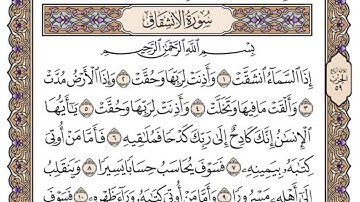 سُورَةُ الانشِقَاقِ
بِسْمِ ٱللَّهِ ٱلرَّحْمَٰنِ ٱلرَّحِيمِ
إِذَا ٱلسَّمَآءُ ٱنشَقَّتۡ ١ وَأَذِنَتۡ لِرَبِّهَا وَحُقَّتۡ ٢ وَإِذَا ٱلۡأَرۡضُ مُدَّتۡ
٣ وَأَلۡقَتۡ مَا فِيهَا وَتَخَلَّتۡ ٤ وَأَذِنَتۡ لِرَبِّهَا وَحُقَّتۡ ٥ يَٰٓأَيُّهَا
ٱلۡإِنسَٰنُ إِنَّكَ كَادِحٌ إِلَىٰ رَبِّكَ كَدۡحٗا فَمُلَٰقِيهِ ٦ فَأَمَّا مَنۡ أُوتِيَ
كِتَٰبَهُۥ بِيَمِينِهِۦ ٧ فَسَوۡفَ يُحَاسَبُ حِسَابٗا يَسِيرٗا ٨ وَيَنقَلِبُ
إِلَىٰٓ أَهۡلِهِۦ مَسۡرُورٗا ٩ وَأَمَّا مَنۡ أُوتِيَ كِتَٰبَهُۥ وَرَآءَ ظَهۡرِهِۦ ١٠ فَسَوۡفَ
الحزب
٥٩